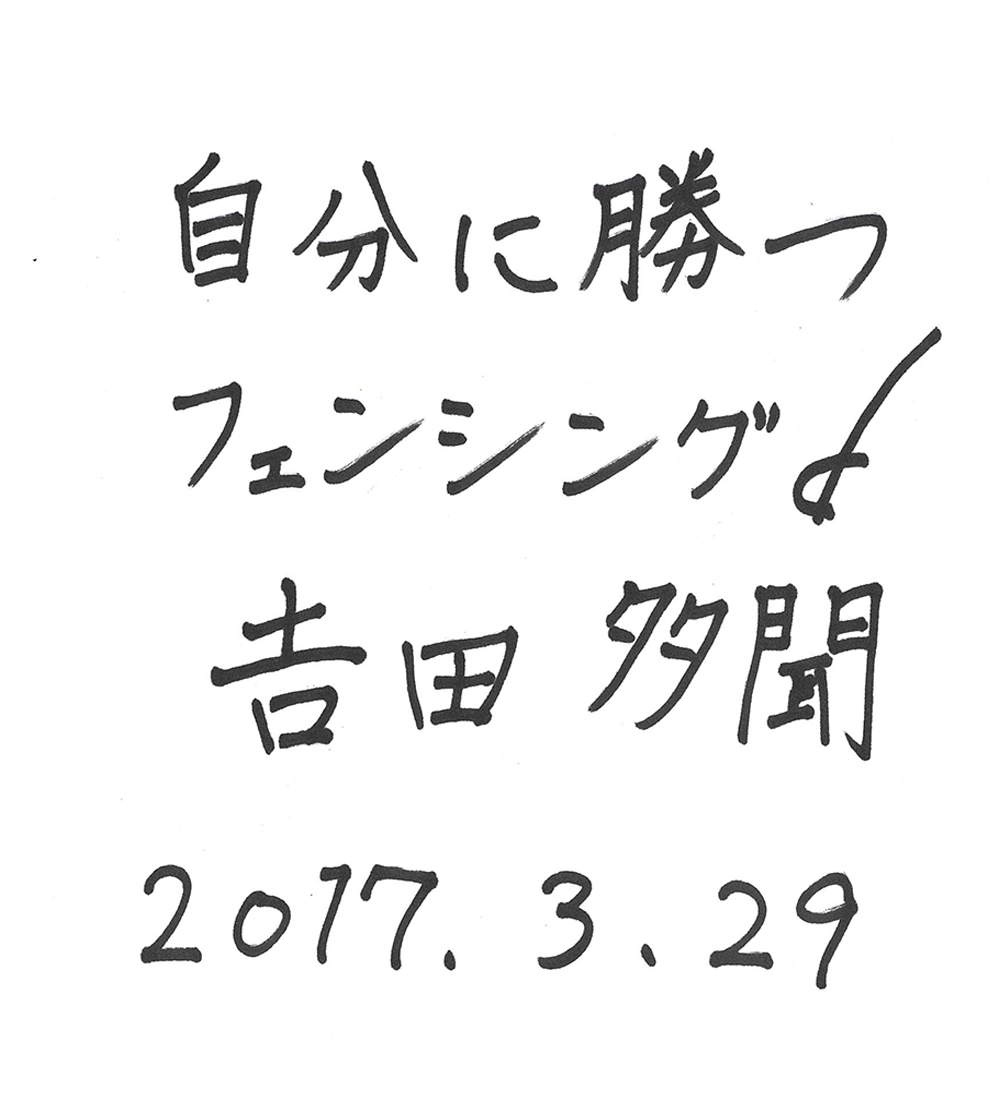 自分に勝つ
フェンシング
𠮷田 多聞
2017.3.29